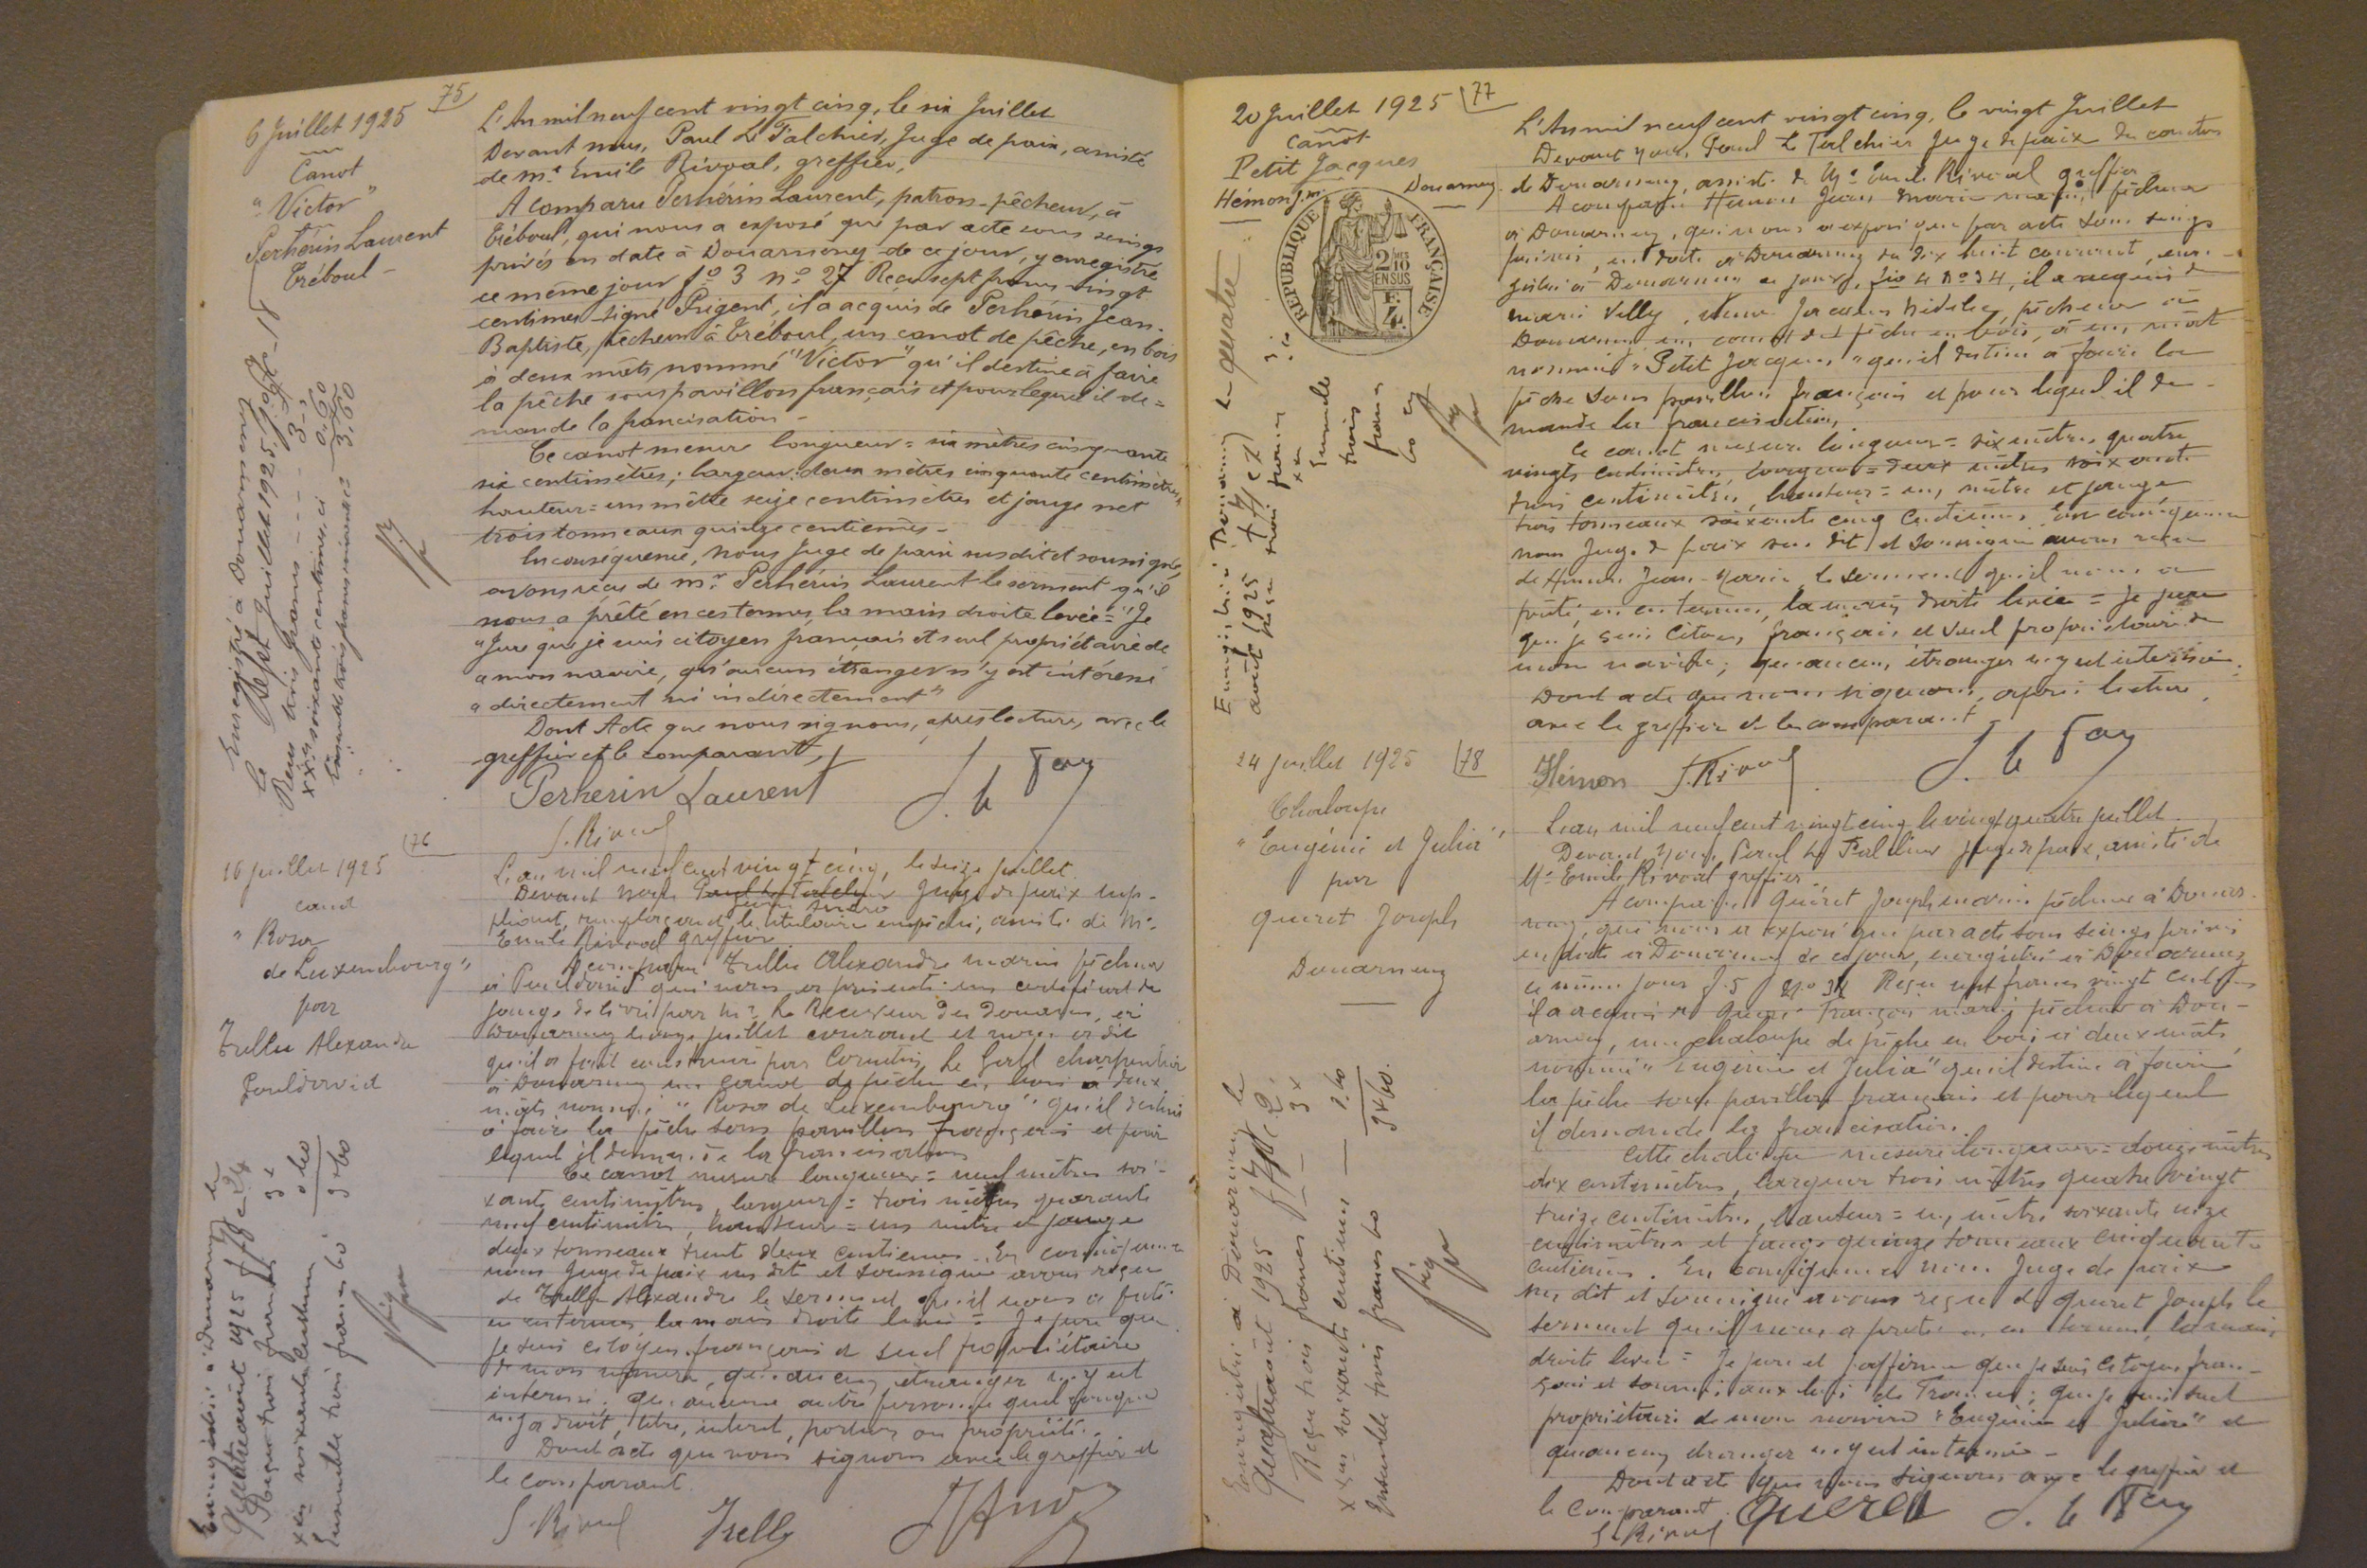 75
6 Juillet 1925
Canot
"Victor"
Perhérin Laurent
Tréboul -
L'An mil neuf cent vingt cinq, le six Juillet
Devant nous, Paul Le Talchier, Juge de paix, assisté
de Me Emile Rivoal, greffier,
A comparu Perhérin Laurent, patron-pêcheur, à
Tréboul, qui nous a exposé que par acte sous seings
privés en date à Douarnenez de ce jour, y enregistré
ce même jour fo 3 no 27 Reçu sept francs vingt
centimes signé Prigent, il a acquis de Perhérin Jean-
Baptiste, pêcheur à Tréboul, un canot de pêche, en bois
à deux mâts, nommé "Victor" qu'il destine à faire
la pêche sous pavillon français et pour lequel il de=
mande la francisation -
Ce canot mesure longueur = six mètres cinquante
six centimètres; largeur: deux mètres cinquante centimètres,
hauteur = un mètre seize centimètres et jauge net
trois tonneaux quinze centièmes -
En conséquence, nous Juge de paix susdit et soussigné,
avons reçu de Mr Perhérin Laurent le serment qu'il
nous a prêté en ces termes, la main droite levée = "Je
"Jure que je suis citoyen français et seul propriétaire de
"mon navire, qu'aucun étranger n'y est intéressé
"directement ni indirectement"
Dont Acte que nous signons, après lecture, avec le
greffier et le comparant,
Perherin Laurent
Enregistré à Douarnenez
le sept Juillet 1925
Reçu trois francs - - - 3 -,
xxes soixante centimes, ci 0,60
Ensemble trois francs soixante 3,60
76
16 Juillet 1925
canot
"Rosa
de Luxembourg"
par
Trellu Alexandre
Pouldavid
L'an mil neuf cent vingt cinq, le seize Juillet
Devant nous Juge de paix sup-
pléant, remplaçant le titulaire empêché, assisté de Me
Emile Rivoal greffier
A comparu Trellu Alexandre marin pêcheur
à Pouldavid qui nous a présenté un certificat de
jauge délivré par Mr Le Receveur des Douanes, à
Douarnenez juillet courant et nous a dit
qu'il a fait construire par Corentin Le Gall charpentier
à Douarnenez un canot de pêche en bois à deux
mâts nommé "Rosa de Luxembourg" qu'il destine
à faire la pêche sous pavillon français et pour
lequel il demande la francisation
Ce canot mesure longueur = neuf mètres soi-
xante centimètres, largeur = trois mètres quarante
neuf centimètres, hauteur = un mètre et jauge
deux tonneaux trente deux centièmes. En conséquence
nous Juge de paix sus dit et soussigné avons reçu
de Trellu Alexandre le serment qu'il nous a prêté
en ces termes la main droite levée = Je jure que
je suis citoyen français et seul propriétaire
de mon navire, qu'aucun étranger n'y est
intéressé. qu'aucune autre personne quelconque
n'y a droit, titre, intérêt, portion ou propriété.
Dont acte que nous signons avec le greffier et
le comparant.
Enregistré à Douarnenez le
Quatre août 1925
Reçu trois francs 3x
xes soixante centimes 0 60
Ensemble trois francs 60 3x60
77
20 Juillet 1925
Canot
Petit Jacques
Hémon J.M. Douarnenez
REPUBLIQUE FRANÇAISE
2/10 EN SUS
F. 4.
L'An mil neuf cent vingt cinq, le vingt Juillet
Devant nous, Paul Le Talchier Juge de paix du canton
de Douarnenez, assisté de Me Emile Rivoal greffier
A comparu Hémon Jean Marie marin pêcheur
à Douarnenez, qui nous a exposé que par acte sous seings
privés, en date à Douarnenez du dix huit courant, enre-
gistré à Douarnenez ce jour, fio 4 No 34, il a acquis de
Marie Velly, veuve Jacques, pêcheur à
Douarnenez un canot de pêche en bois, à un mât
nommé "Petit Jacques" qu'il destine à faire la
pêche sous pavillon français et pour lequel il de-
mande la francisation,
Ce canot mesure longueur = six mètres quatre
vingts centimètres, largeur = deux mètres soixante
trois centimètres, hauteur = un mètre et jauge
trois tonneaux soixante cinq centièmes. En conséquence
nous Juge de paix sus dit et soussigné avons reçu
de Hémon Jean-Marie le serment qu'il nous a
prêté, en ces termes, la main droite levée = Je jure
que je suis citoyen français et seul propriétaire de
mon navire; qu'aucun étranger n'y est intéressé.
Dont acte que nous signons, après lecture,
avec le greffier et le comparant
Hémon
Enregistré Douarnenez le quatre
août 1925
Reçu trois francs
Ensemble
trois
francs
60
78
24 Juillet 1925
Chaloupe
"Eugénie et Julia"
par
Quéret Joseph
Douarnenez
L'an mil neuf cent vingt cinq le vingt quatre juillet
Devant Nous, Paul Le Talchier Juge de paix, assisté de
Me Emile Rivoal greffier
A comparu Quéret Joseph marin pêcheur à Douar-
nenez, qui nous a exposé que par acte sous seings privés
en date à Douarnenez de ce jour, enregistré à Douarnenez
ce même jour f.5 Reçu sept francs vingt centimes
il a acquis de Quéré François marin pêcheur à Dou-
arnenez, une chaloupe de pêche en bois à deux mâts,
nommée "Eugénie et Julia" qu'il destine à faire
la pêche sous pavillon français et pour lequel
il demande la francisation.
Cette chaloupe mesure longueur = douze mètres
dix centimètres, largeur trois mètres quatre vingt
treize centimètres, hauteur = un mètre soixante
centimètres et jauge quinze tonneaux cinquante
centièmes. En conséquence nous Juge de paix
sus dit et soussigné avons reçu de Quéret Joseph le
serment qu'il nous a prêté en ces termes, la main
droite levée = Je jure et j'affirme que je suis citoyen fran-
çais et soumis aux lois de France; que je suis seul
propriétaire de mon navire "Eugénie et Julia" et
qu'aucun étranger n'y est intéressé -
Dont acte que nous signons avec le greffier et
le comparant.
Queret
Enregistré à Douarnenez le
Quatre août 1925
Reçu trois francs - - 3x
xes soixante centimes - 0.60
Ensemble trois francs 60 3x60.